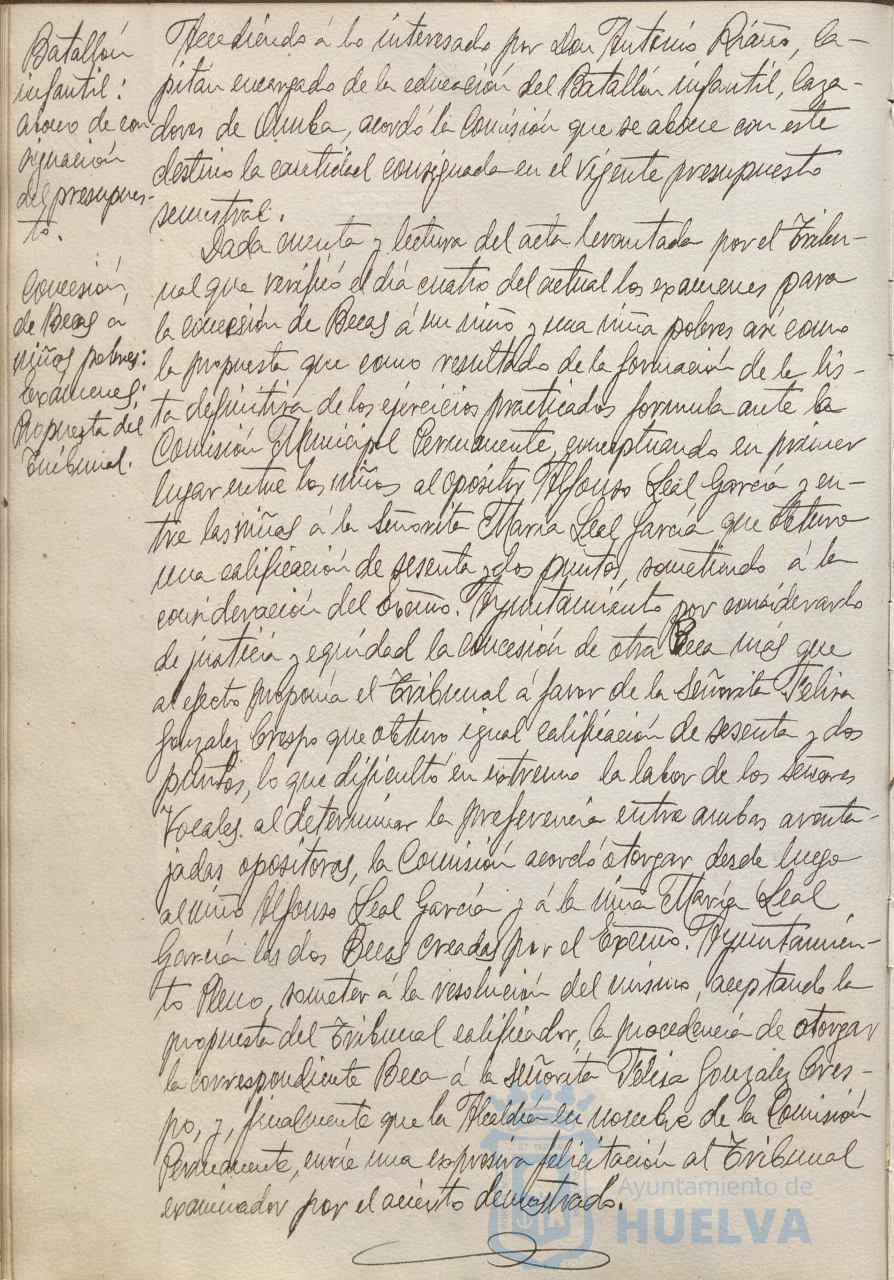 Batallón
infantil:
abono de con-
signación
del presupues-
to.
Accediendo á lo interesado por Don Antonio Riaño, Ca-
pitán encargado de la educación del Batallón infantil, Caza-
dores de Onuba, acordó la Comisión que se abone con este
destino la cantidad consignada en el vigente presupuesto
semestral.
Concesión
de Becas a
niños pobres:
exámenes:
Propuesta del
Tribunal.
Dada cuenta y lectura del acta levantada por el Tribu-
nal que verificó el día cuatro del actual los exámenes para
la concesión de Becas á un niño y una niña pobres así como
la propuesta que como resultado de la formación de la lis-
ta definitiva de los ejercicios practicados formula ante la
Comisión Municipal Permanente, conceptuando en primer
lugar entre los niños al opositor Alfonso Leal García y en-
tre las niñas á la Señorita María Leal García que obtuvo
una calificación de sesenta y dos puntos, sometiendo á la
consideración del Excmo. Ayuntamiento por considerarlo
de justicia y equidad la concesión de otra Beca más que
al efecto proponía el Tribunal á favor de la Señorita Felisa
Gonzalez Crespo que obtuvo igual calificación de sesenta y dos
puntos, lo que dificultó en extremo la labor de los Señores
Vocales al determinar la preferencia entre ambas aventa-
jadas opositoras, la Comisión acordó otorgar desde luego
al niño Alfonso Leal García y á la niña María Leal
García las dos Becas creadas por el Excmo. Ayuntamien-
to Pleno, someter á la resolución del mismo, aceptando la
propuesta del Tribunal calificador, la procedencia de otorgar
la correspondiente Beca á la Señorita Felisa Gonzalez Cres-
po, y, finalmente que la Alcaldía en nombre de la Comisión
Permanente, envíe una expresiva felicitación al Tribunal
examinador por el acierto demostrado.
Ayuntamiento de
HUELVA